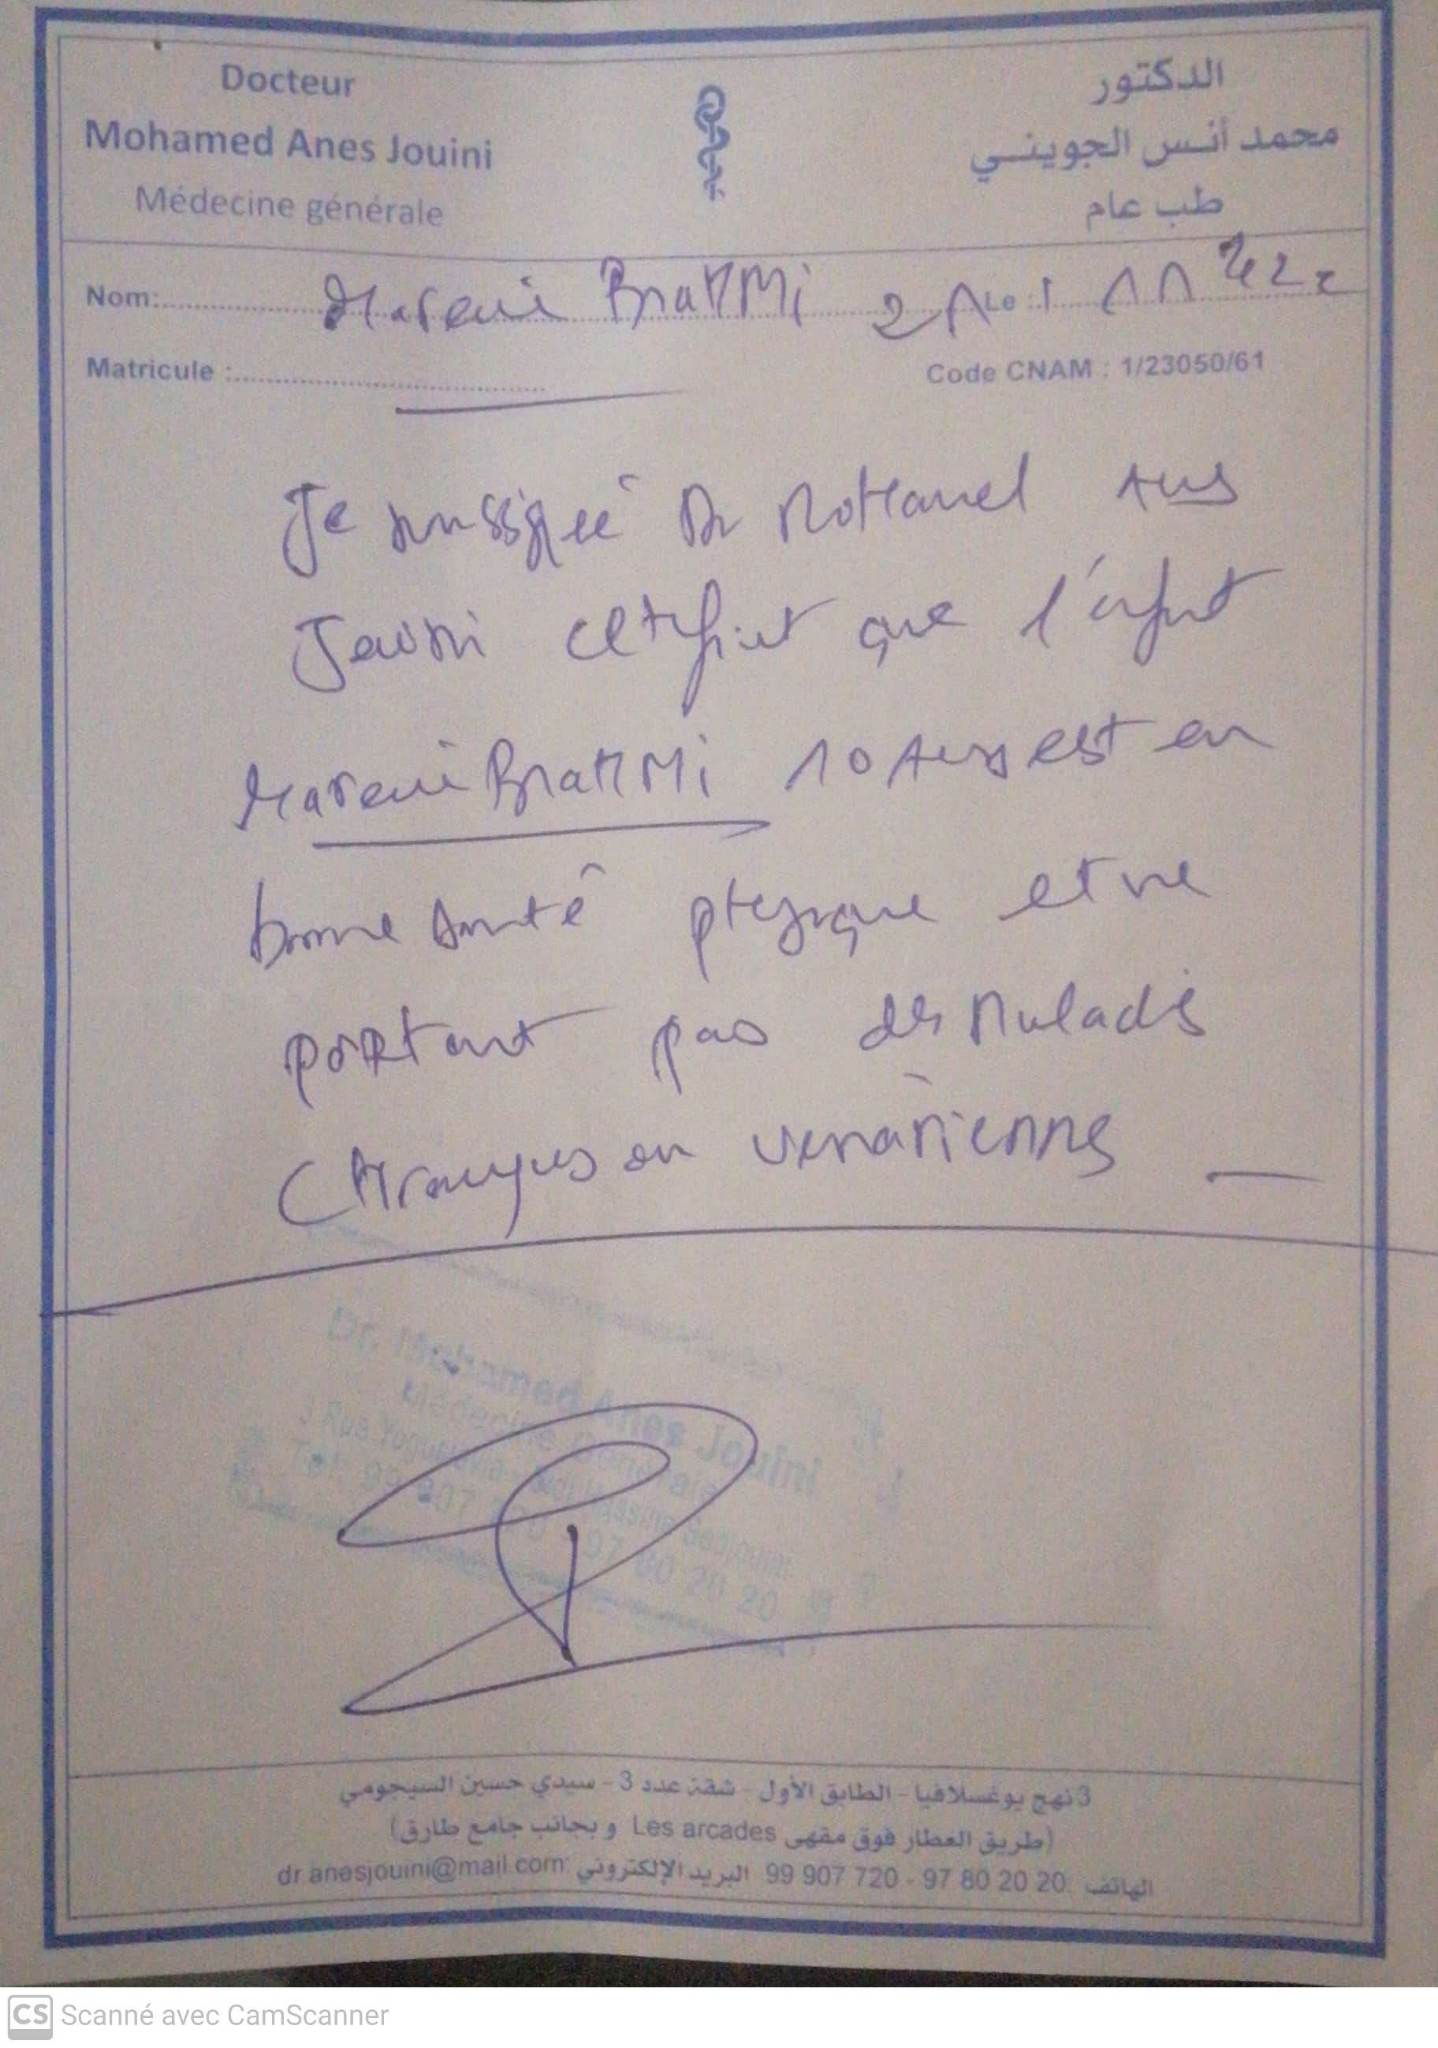 Docteur
Mohamed Anes Jouini
Médecine générale
الدكتور
محمد أنس الجويني
طب عام
Nom: BraHMi 21 Le : 11
Matricule :
Code CNAM : 1/23050/61
Je soussigné Dr Mohamed Anes
Jouini certifiet que l'enfant
BraHMi 10 Ans est en
bonne santé physique et ne
portant pas des maladis
Chroniques ou venariennes
Dr. Mohamed Anes Jouini
Médecine Générale
3 Rue Yougoslavia - Sidi Hassine Sedjoumi
Tel. 99 907 720 - 97 80 20 20
3 نهج يوغسلافيا - الطابق الأول - شقة عدد 3 - سيدي حسين السيجومي
(طريق العطار فوق مقهى Les arcades و بجانب جامع طارق)
الهاتف : 97 80 20 20 - 99 907 720 البريد الإلكتروني : dr.anesjouini@mail.com
CS Scanné avec CamScanner